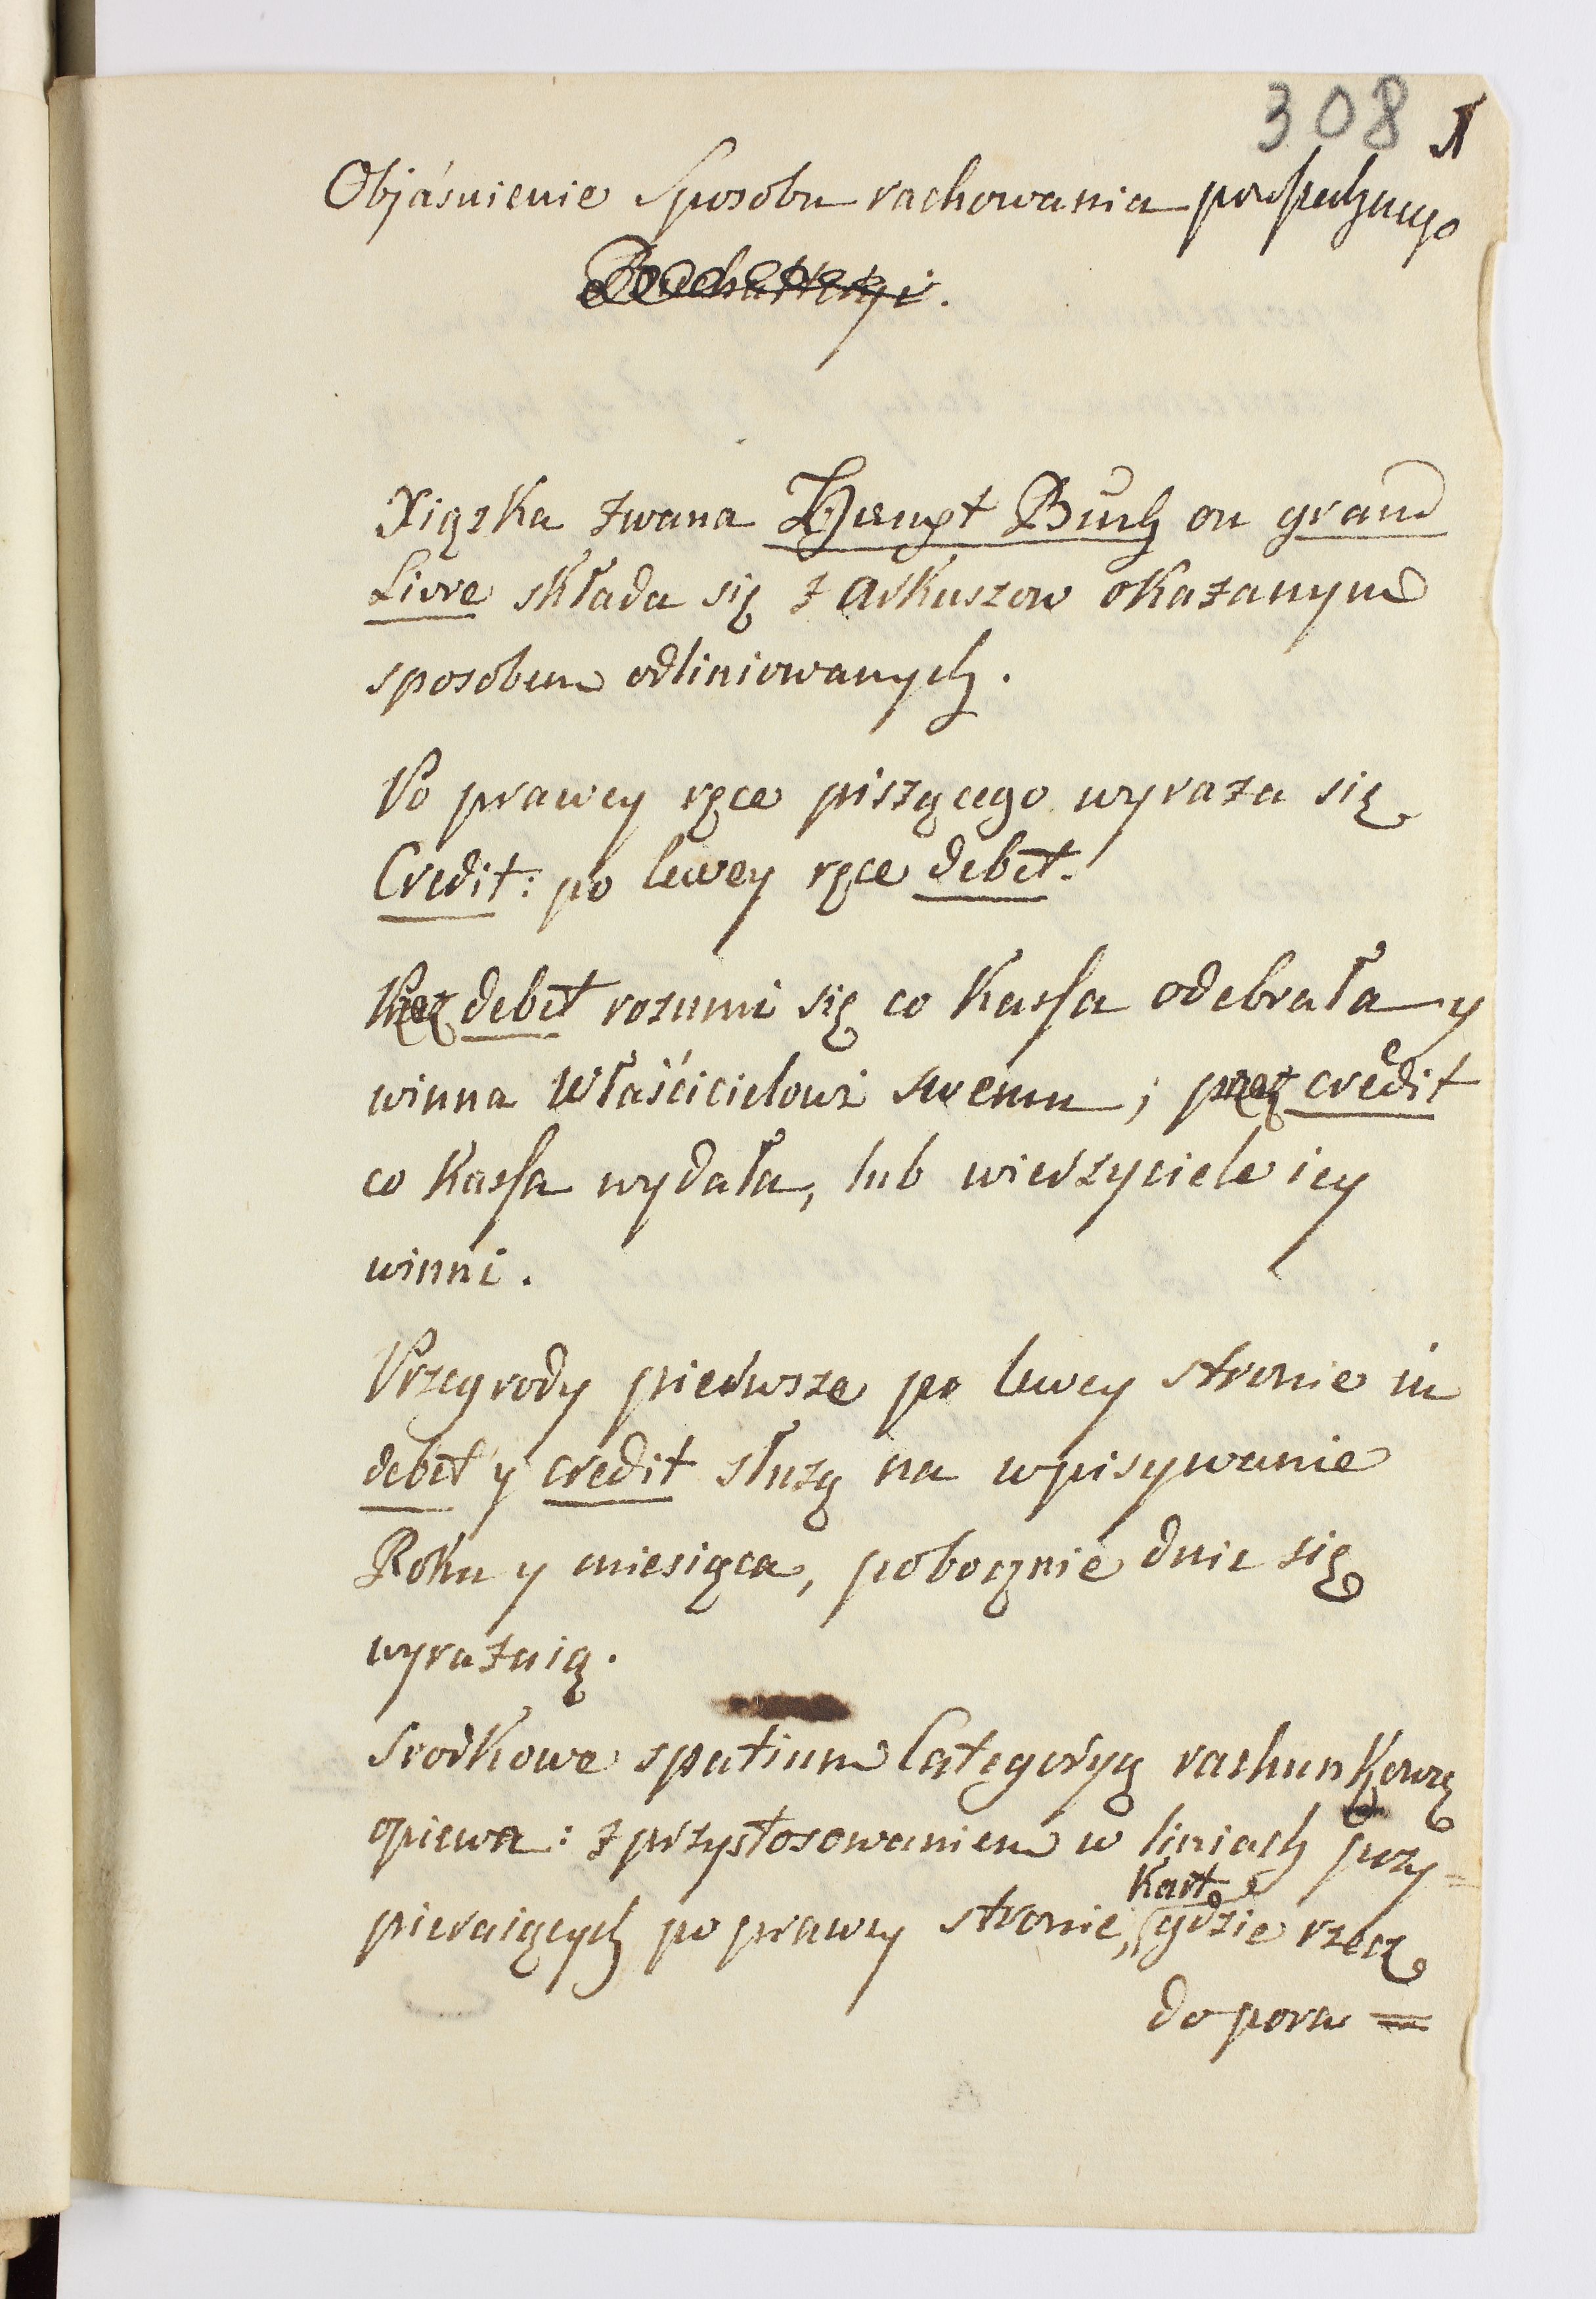 308 1
Objáśnienie Sposobu rachowania powszechnego
Xiąszka zwana Haupt Buch ou grand
Livre składa się z arkuszow okazanym
sposobem odliniowanych.
Po prawey ręce piszącego wyraza się
Credit: po lewey ręce debet.
Przez debet rozumi się co Kassa odebrała y
winna Właścicielowi swemu; przez credit
co Kassa wydała, lub wierzyciele iey
winni.
Przegrody pierwsze po lewey stronie in
debet y credit służą na wpisywanie
Roku y miesiąca, pobocznie dnie się
wyrazaią.
Srodkowe spatium Categoryą rachunkową
opiewa: z przystosowaniem w liniach przy=
pieraiących po prawey stronie, Kart gdzie rzecz
do pora =